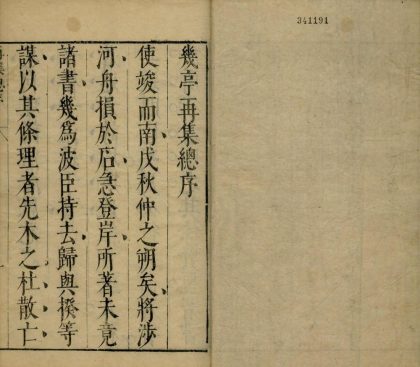 341191
幾亭再集總序
使竣而南戊秋仲之朔矣將渉
河舟損於石急登岸所著未竟
諸書幾爲波臣持去歸與揆等
謀以其條理者先木之杜散亡